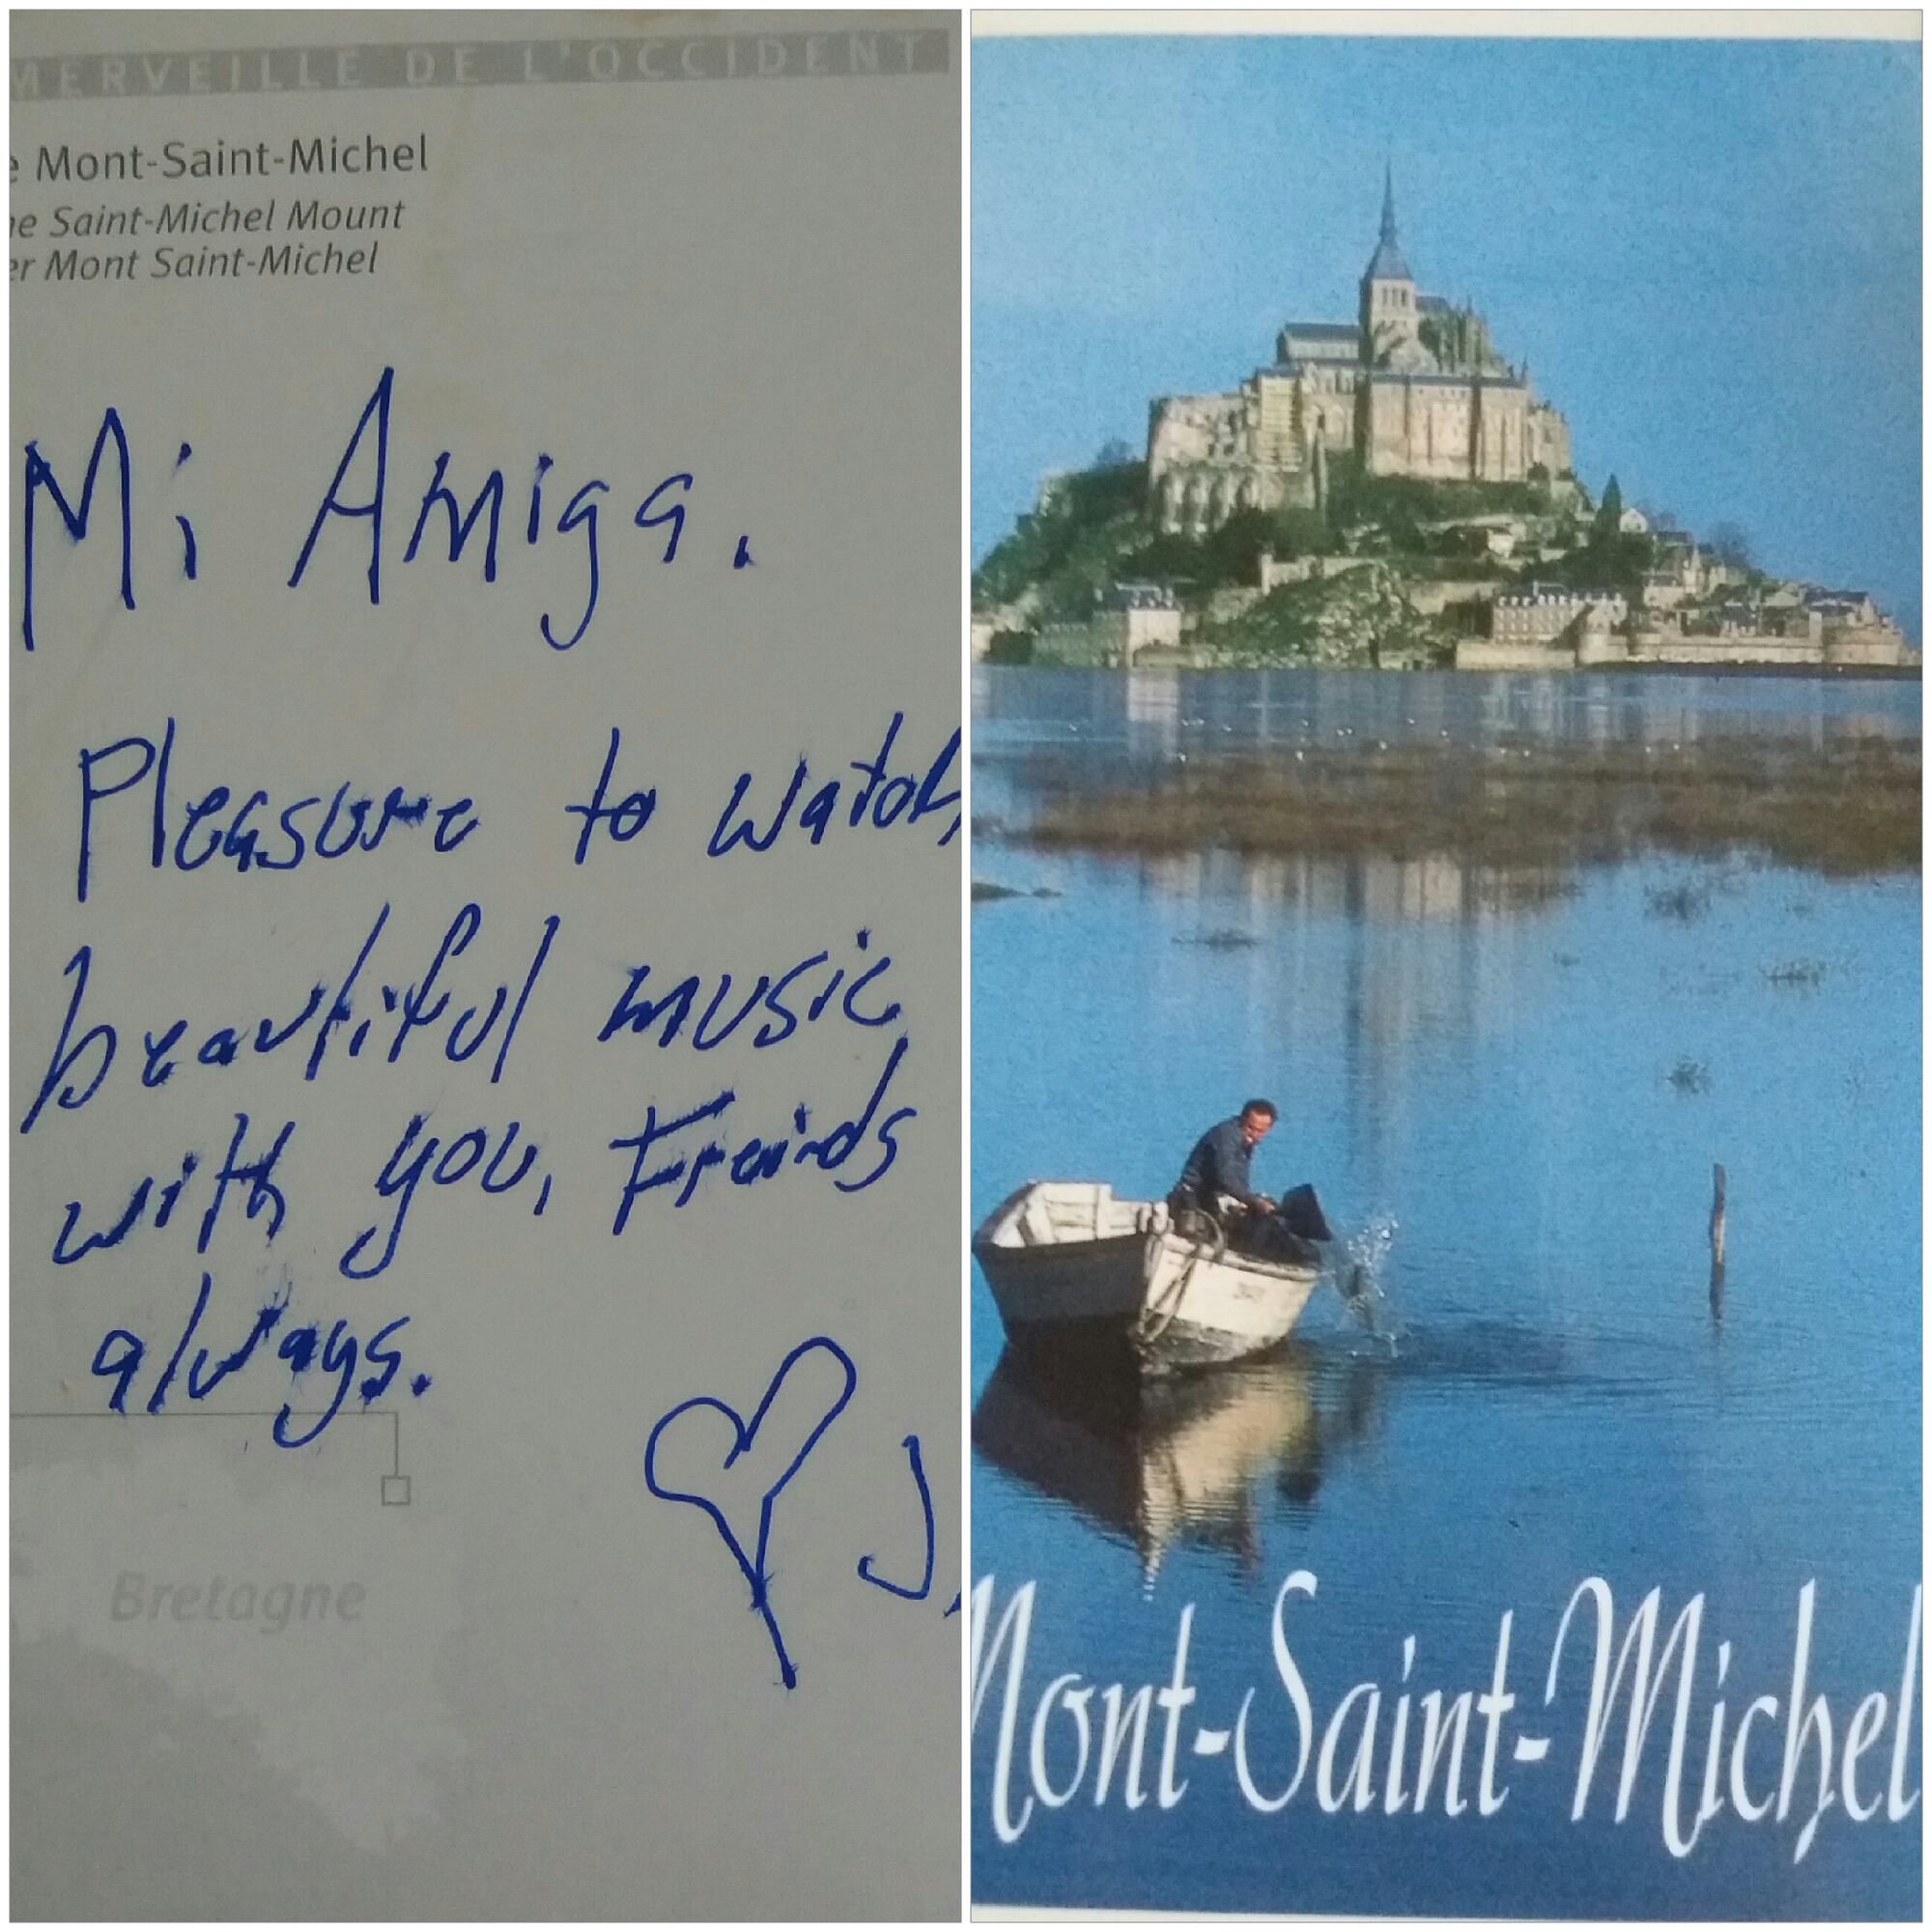 MERVEILLE DE L'OCCIDENT
e Mont-Saint-Michel
he Saint-Michel Mount
er Mont Saint-Michel
Mi Amiga.
Pleasure to watch
beautiful music
with you, Freinds
always.
J.
Bretagne
Mont-Saint-Michel